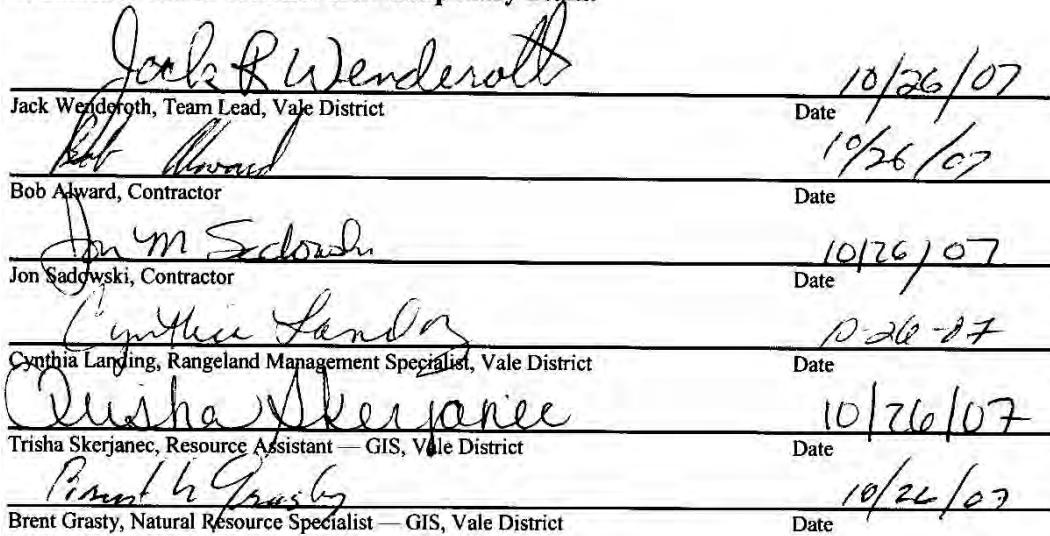 Jack R Wenderoth 10/26/07
Jack Wenderoth, Team Lead, Vale District Date
Bob Alward 10/26/07
Bob Alward, Contractor Date
Jon M Sadowski 10/26/07
Jon Sadowski, Contractor Date
Cynthia Landing 10-26-07
Cynthia Landing, Rangeland Management Specialist, Vale District Date
Trisha Skerjanec 10/26/07
Trisha Skerjanec, Resource Assistant — GIS, Vale District Date
Brent Grasty 10/26/07
Brent Grasty, Natural Resource Specialist — GIS, Vale District Date